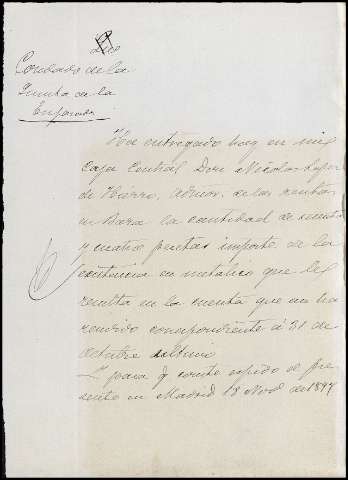 Condado de la
Quinta de la
Enjarada
Ha entregado hoy en mi
Caja Central Don Nicolas Lopez
de Hierro, Admor. de las rentas
en la cantidad de
y cuatro pesetas importe de la
existencia en metalico que le
resulta en la cuenta que me ha
rendido correspondiente á 31 de
Octubre ultimo
Y para q conste expido el pre
sente en Madrid 18 Novb de 1897